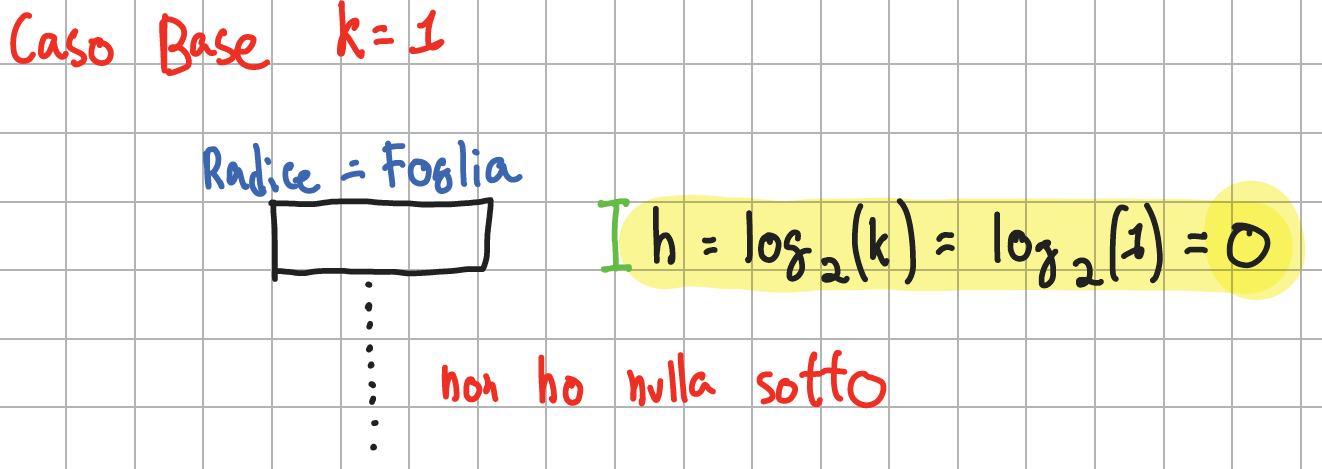 Caso Base k = 1
Radice = Foglia
h = log₂(k) = log₂(1) = 0
non ho nulla sotto